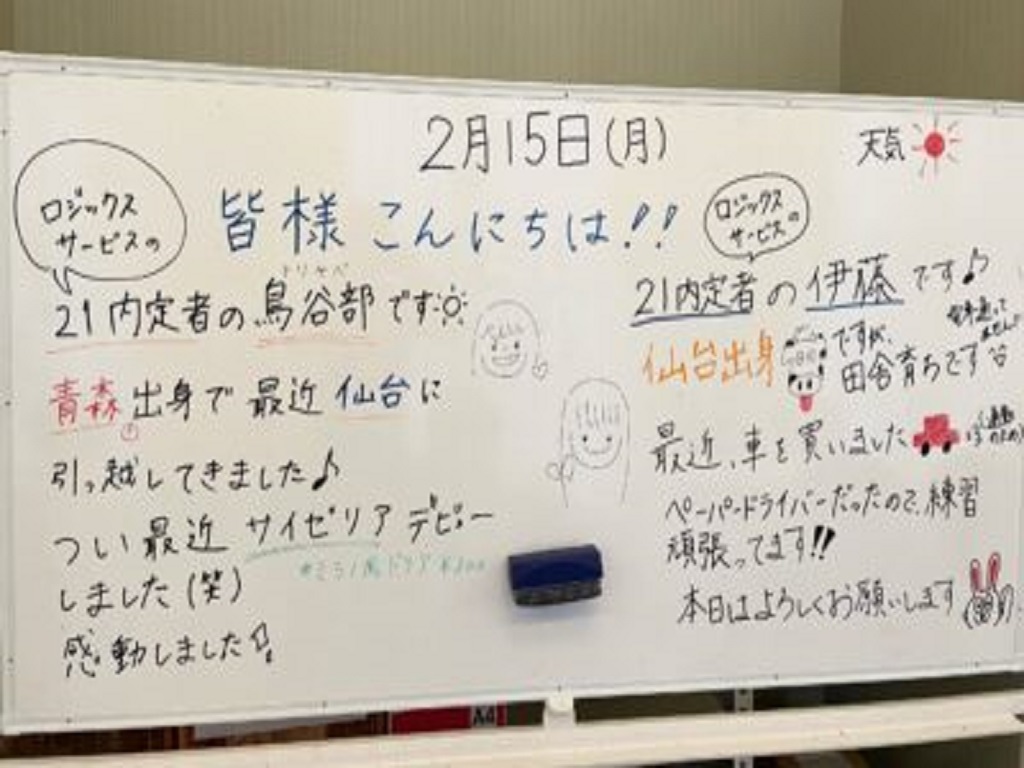 2月15日(月)
天気
皆様 こんにちは!!
ロジックス
サービスの
21内定者の鳥谷部です
トリヤベ
青森出身で最近仙台に
引っ越してきました♪
つい最近 サイゼリア デビュー
#ミラノ風ドリア ¥300
しました(笑)
感動しました
ロジックス
サービスの
21内定者の伊藤です♪
仙台出身ですが、
田舎育ちです
最近、車を買いました
ペーパードライバーだったので、練習
頑張ってます!!
本日はよろしくお願いします
A4